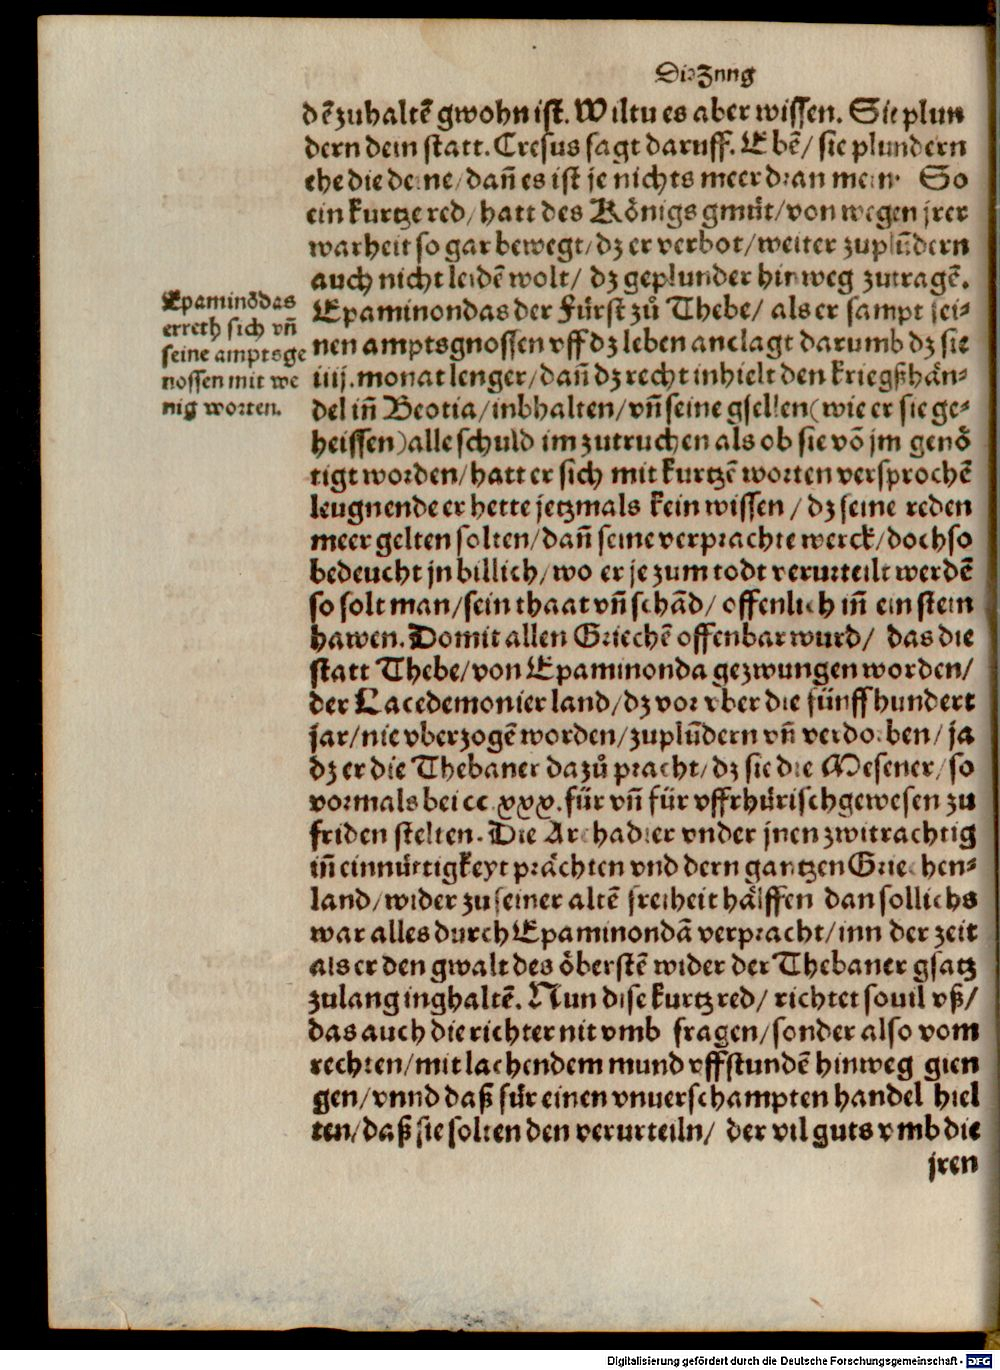 Die Zung
dẽ zuhaltẽ gwohn ist. Wiltu es aber wissen. Sie plun
dern dein statt. Cresus sagt daruff. Ebẽ/ sie plundern
ehe die deine/ dañ es ist je nichts meer dran mein. So
ein kurtze red/ hatt des Königs gmüt/ von wegen jrer
warheit so gar bewegt/ dz er verbot/ weiter zuplũdern
auch nicht leidẽ wolt/ dz geplunder hinweg zutragẽ.
Epaminõdas
erreth sich vñ
seine amptsge
nossen mit we
nig worten.
Epaminondas der Fürst zů Thebe/ als er sampt sei-
nen amptsgnossen vff dz leben anclagt darumb dz sie
iiij. monat lenger/ dañ dz recht inhielt den kriegßhän-
del iñ Beotia/ inbhalten/ vñ seine gsellen (wie er sie ge-
heissen) alle schuld im zutruchen als ob sie võ jm genö
tigt worden/ hatt er sich mit kurtzẽ worten versprochẽ
leugnende er hette jetzmals kein wissen/ dz seine reden
meer gelten solten/ dañ seine verprachte werck/ doch so
bedeucht jn billich/ wo er je zum todt verurteilt werdẽ
so solt man/ sein thaat vñ schãd/ offenlich iñ ein stein
hawen. Domit allen Griechẽ offenbar wurd/ das die
statt Thebe/ von Epaminonda gezwungen worden/
der Lacedemonier land/ dz vor vber die fünffhundert
jar/ nie vberzogẽ worden/ zuplũdern vñ verdorben/ ja
dz er die Thebaner dazů pracht/ dz sie die Mesener/ so
vormals bei cc.xxx. für vñ für vffrhürisch gewesen zu
friden stelten. Die Archadier vnder jnen zwitrachtig
iñ einmüttigkeyt prächten vnd dern gantzen Griechen-
land/ wider zu seiner altẽ freiheit hälffen dan sollichs
war alles durch Epaminondã verpracht/ inn der zeit
als er den gwalt des öberstẽ wider der Thebaner gsatz
zulang inghaltẽ. Nun dise kurtz red/ richtet souil vß/
das auch die richter nit vmb fragen/ sonder also vom
rechten/ mit lachendem mund vffstundẽ hinweg gien
gen/ vnnd daß für einen vnuerschampten handel hiel
ten/ daß sie solten den verurteiln/ der vil guts vmb die
jren
Digitalisierung gefördert durch die Deutsche Forschungsgemeinschaft - DFG